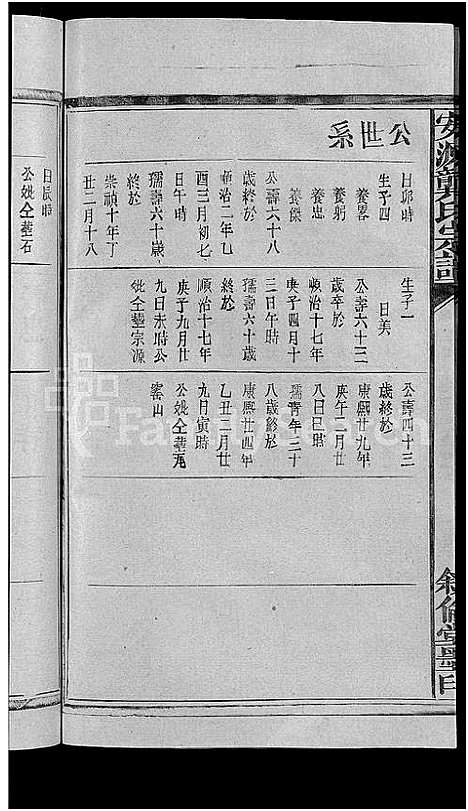 公世系
日卯時
生子四
養畧
養躬
養忠
養傑
公壽六十八
歲終於
順治二年乙
酉三月初七
日午時
孺壽六十歲
終於
崇禎十年丁
丑二月十八
生子一
日美
公壽六十三
歲卒於
順治十七年
庚子四月十
三日午時
孺壽六十歲
終於
順治十七年
庚子九月廿
九日未時公
妣仝塟宗源
公壽四十三
歲終於
康熙廿九年
庚午二月廿
八日巳時
孺青年三十
八歲終於
康熙廿四年
乙丑二月廿
九日寅時
公妣仝塟瓦
窰山
日辰時
公妣仝塟石
龔氏宗譜
敘倫堂